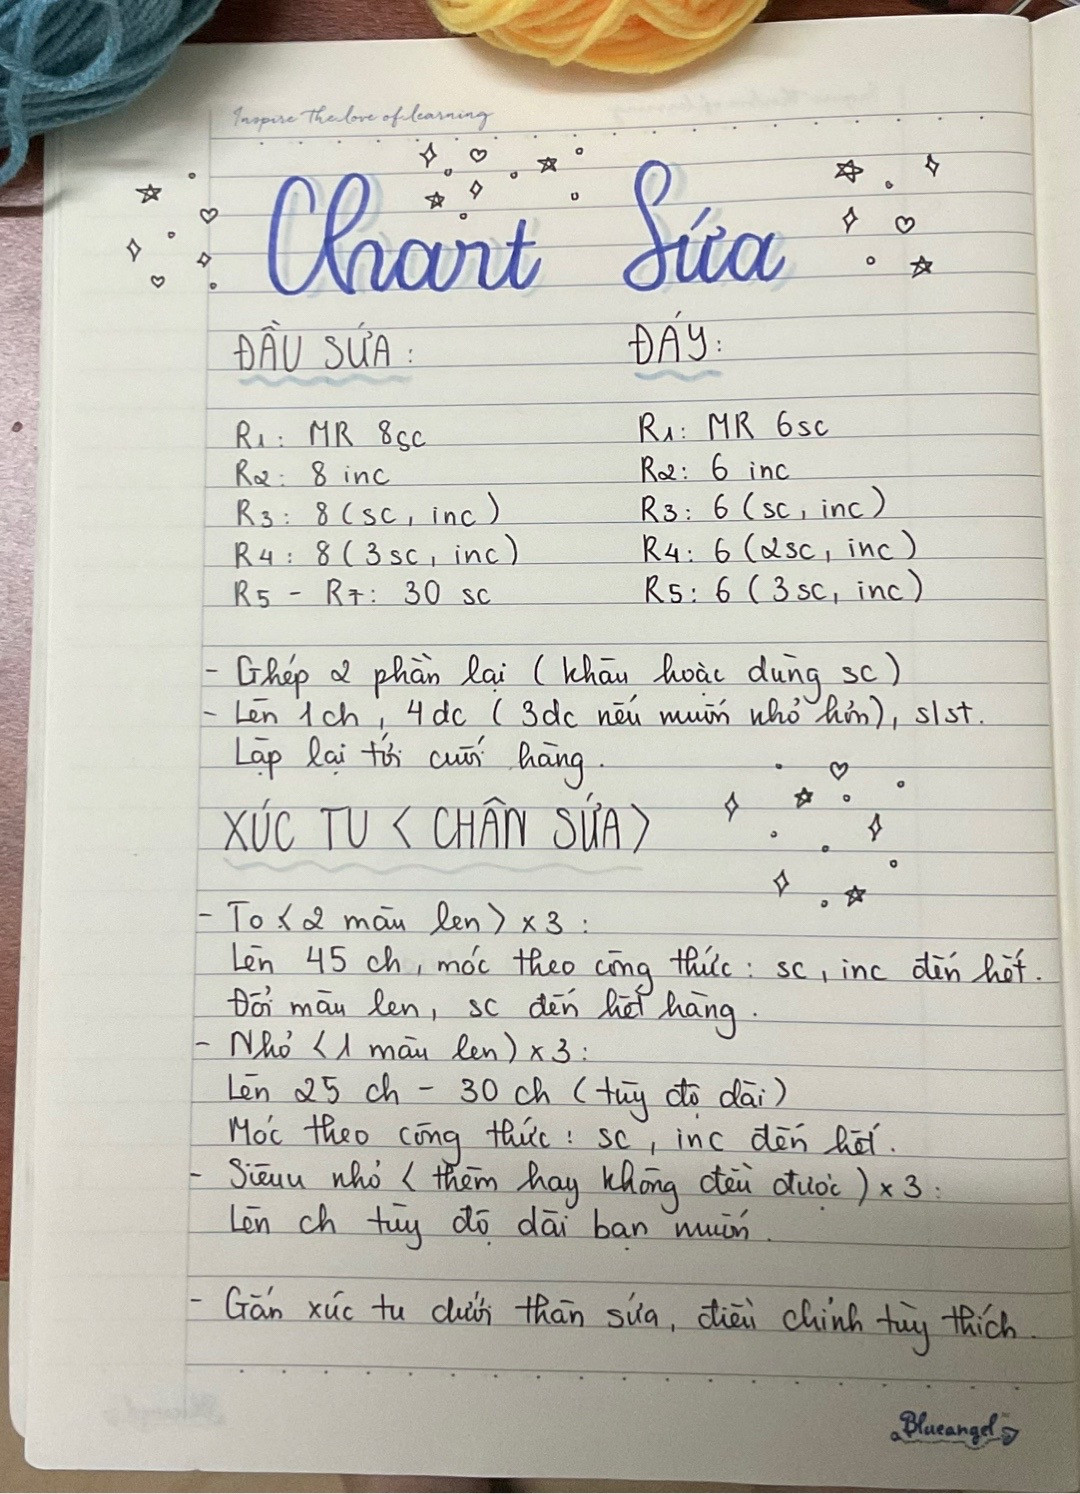 Inspire the love of learning
Chart Sứa
ĐẦU SỨA:
R1: MR 8sc
R2: 8 inc
R3: 8 (sc, inc)
R4: 8 (3sc, inc)
R5 - R7: 30 sc
ĐÁY:
R1: MR 6sc
R2: 6 inc
R3: 6 (sc, inc)
R4: 6 (2sc, inc)
R5: 6 (3sc, inc)
- Ghép 2 phần lại (khâu hoặc dùng sc)
- Lên 1ch, 4dc (3dc nếu muốn nhỏ hơn), slst.
Lặp lại tới cuối hàng.
XÚC TU <CHÂN SỨA>
- To <2 màu len> x3:
Lên 45 ch, móc theo công thức: sc, inc đến hết.
Đổi màu len, sc đến hết hàng.
- Nhỏ <1 màu len> x3:
Lên 25 ch - 30 ch (tùy độ dài)
Móc theo công thức: sc, inc đến hết.
- Siêuu nhỏ <thêm hay không đều được> x3:
Lên ch tùy độ dài bạn muốn.
- Gắn xúc tu dưới thân sứa, điều chỉnh tùy thích.
Blueangel